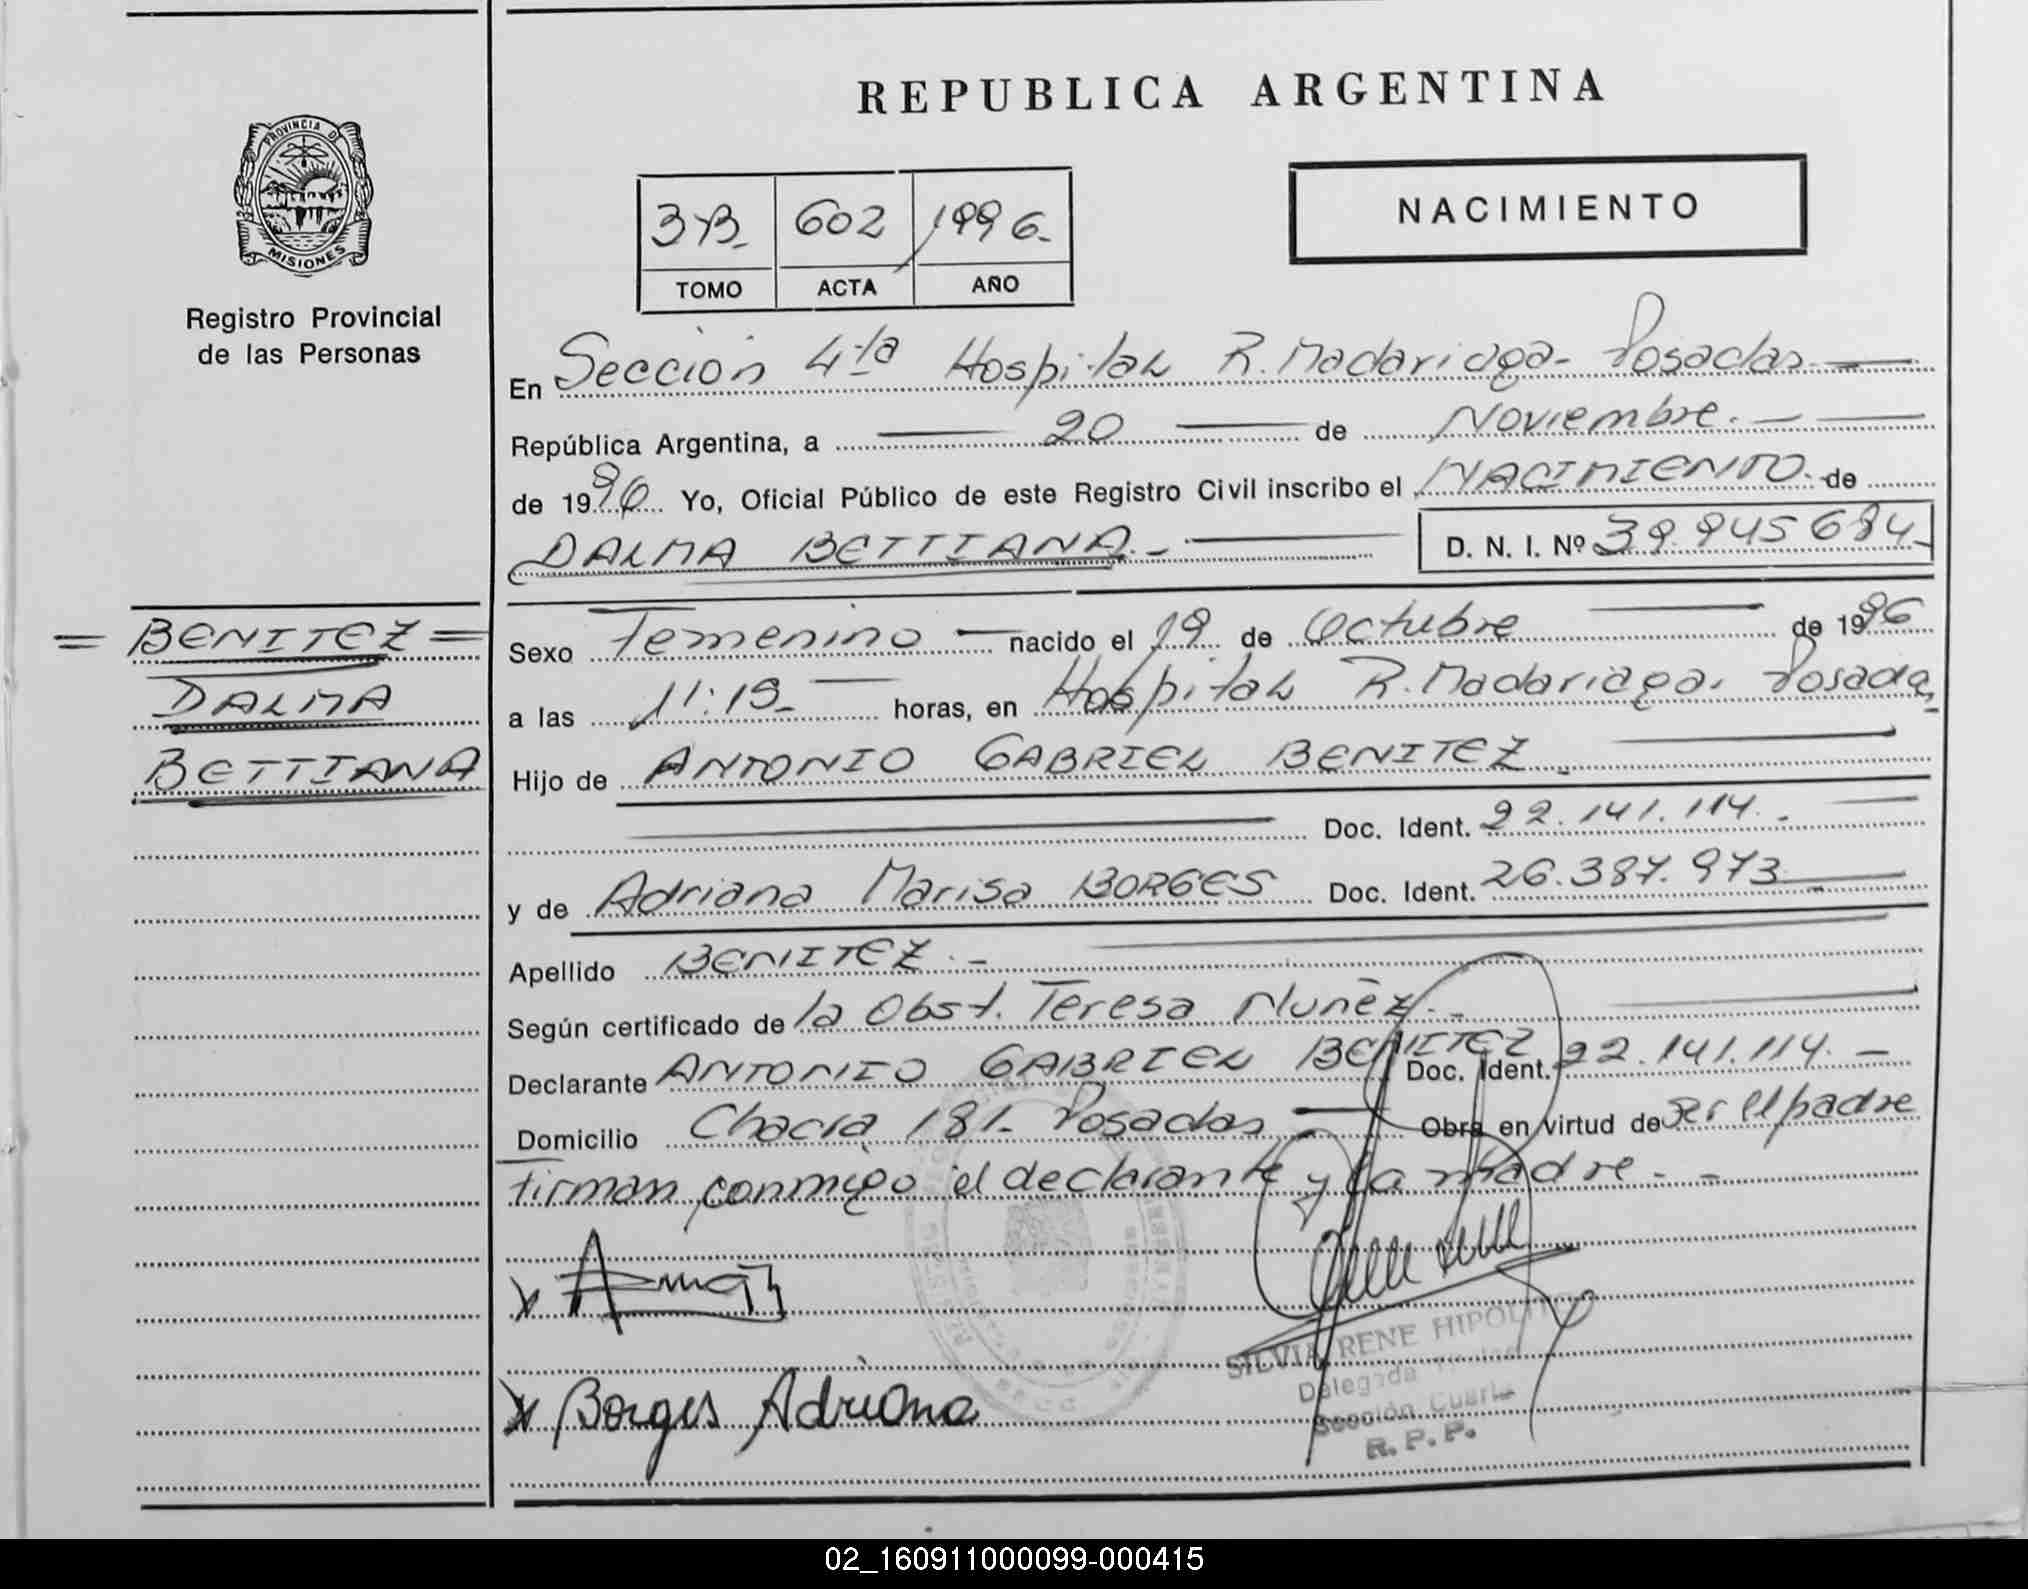 REPUBLICA ARGENTINA
PROVINCIA DE
MISIONES
Registro Provincial
de las Personas
3B- 602 1996-
TOMO ACTA AÑO
NACIMIENTO
En Sección 4ta Hospital R. Madariaga - Posadas
República Argentina, a 20 de Noviembre.
de 1996 Yo, Oficial Público de este Registro Civil inscribo el NACIMIENTO de
DALMA BETTIANA.- D. N. I. Nº 39.945684-
= BENITEZ =
DALMA
BETTIANA
Sexo Femenino nacido el 19 de Octubre de 1996
a las 11:19- horas, en Hospital R. Madariaga. Posadas
Hijo de ANTONIO GABRIEL BENITEZ.
Doc. Ident. 22.141.114.-
y de Adriana Marisa BORGES Doc. Ident. 26.387.973
Apellido BENITEZ.-
Según certificado de la Obst. Teresa Nuñez.-
Declarante ANTONIO GABRIEL BENITEZ Doc. Ident. 22.141.114.-
Domicilio Chacra 181- Posadas Obra en virtud de Ser el padre
Firman conmigo el declarante y la madre.-
SILVIA RENE HIPOLITO
Delegada Titular
Sección Cuarta
R. P. P.
x Borges Adriana
02_160911000099-000415